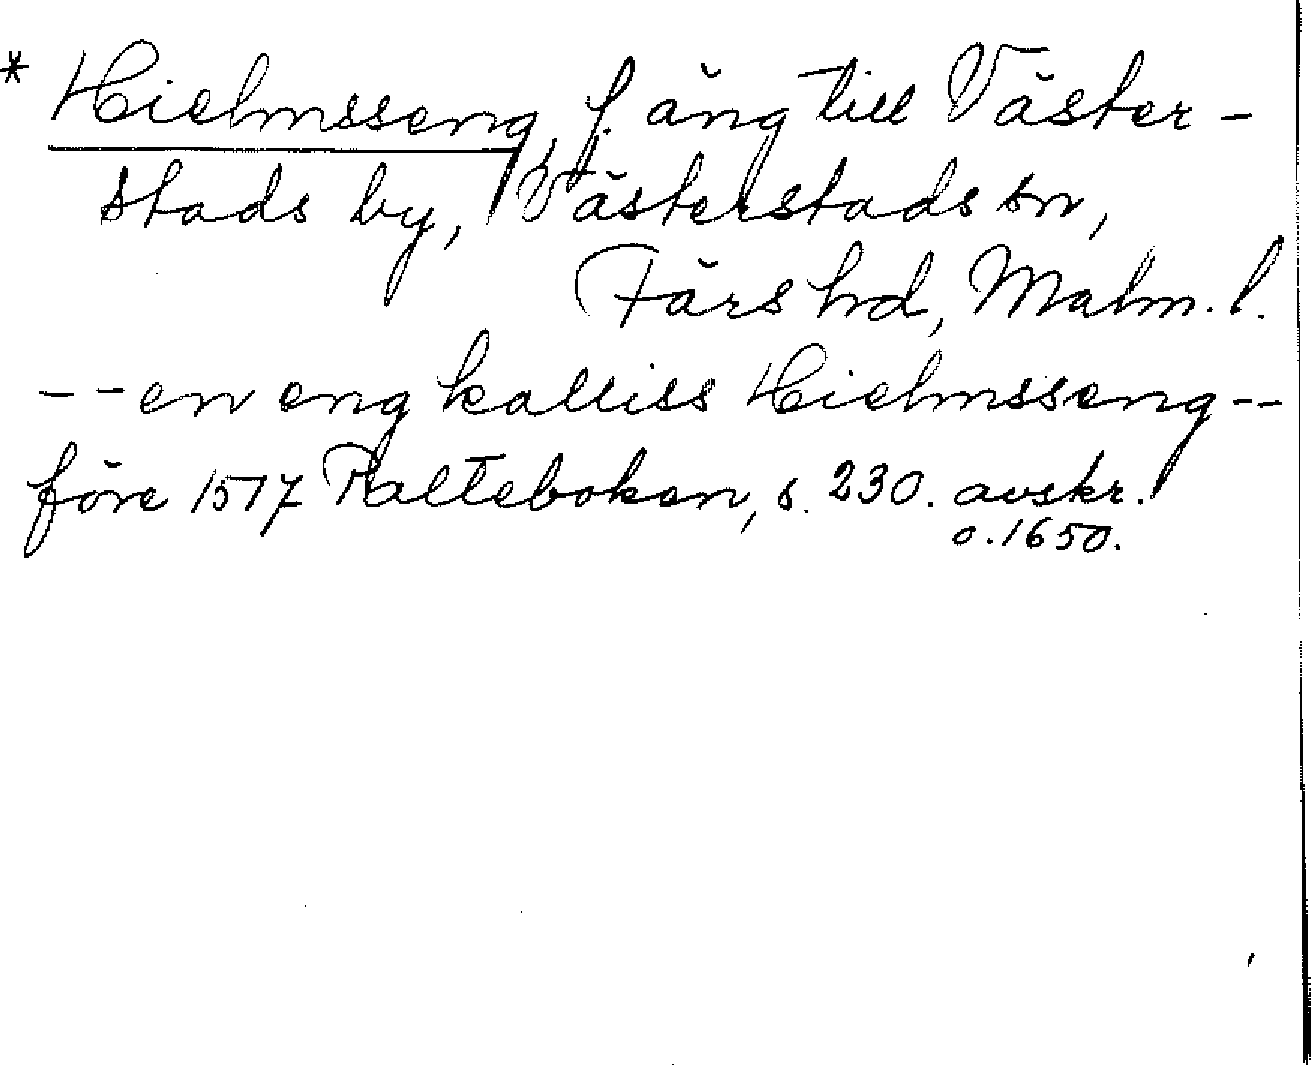 * Hielmsseng, f. äng till Väster-
stads by, Västerstads sn,
Färs hd, Malm. l.
-- en eng kalliss Hielmsseng --
före 1517 Palteboken, s. 230. avskr.
o. 1650.